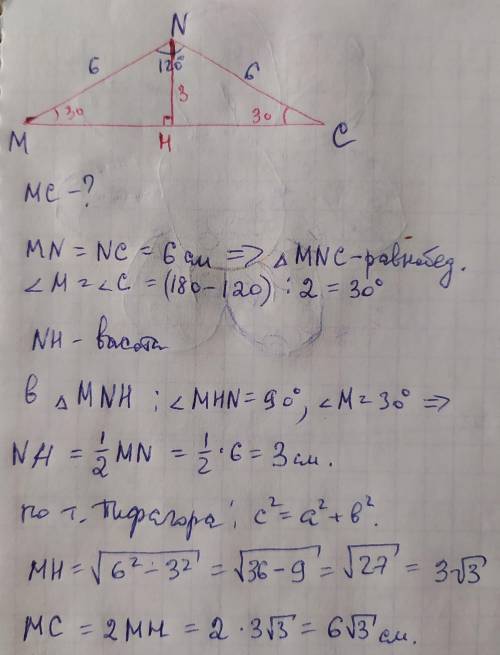 N
6 120° 6
3
30 30
M H C
MC - ?
MN = NC = 6 см => △MNC - равнобед.
∠M = ∠C = (180 - 120) : 2 = 30°
NH - высота
в △MNH : ∠MHN = 90°, ∠M = 30° =>
NH = 1/2 MN = 1/2 · 6 = 3 см.
по т. Пифагора: c² = a² + b².
MH = √(6² - 3²) = √(36 - 9) = √27 = 3√3
MC = 2MH = 2 · 3√3 = 6√3 см.